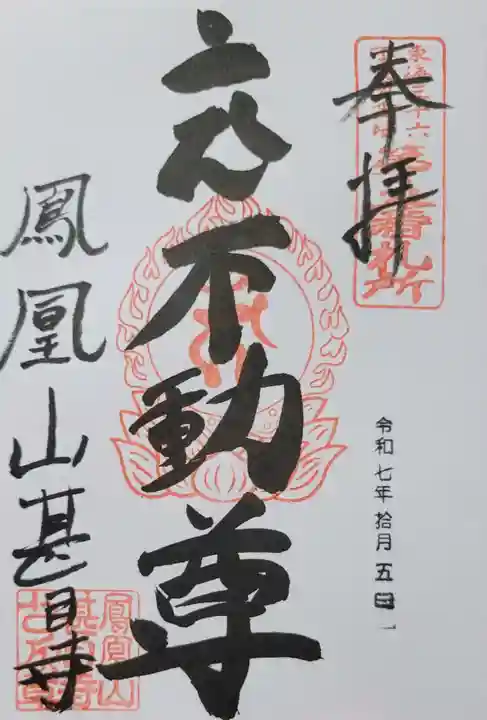 奉拝
東海三十六
番札所
不動尊
令和七年拾月五日
鳳凰山甚目寺
鳳凰山
甚目寺